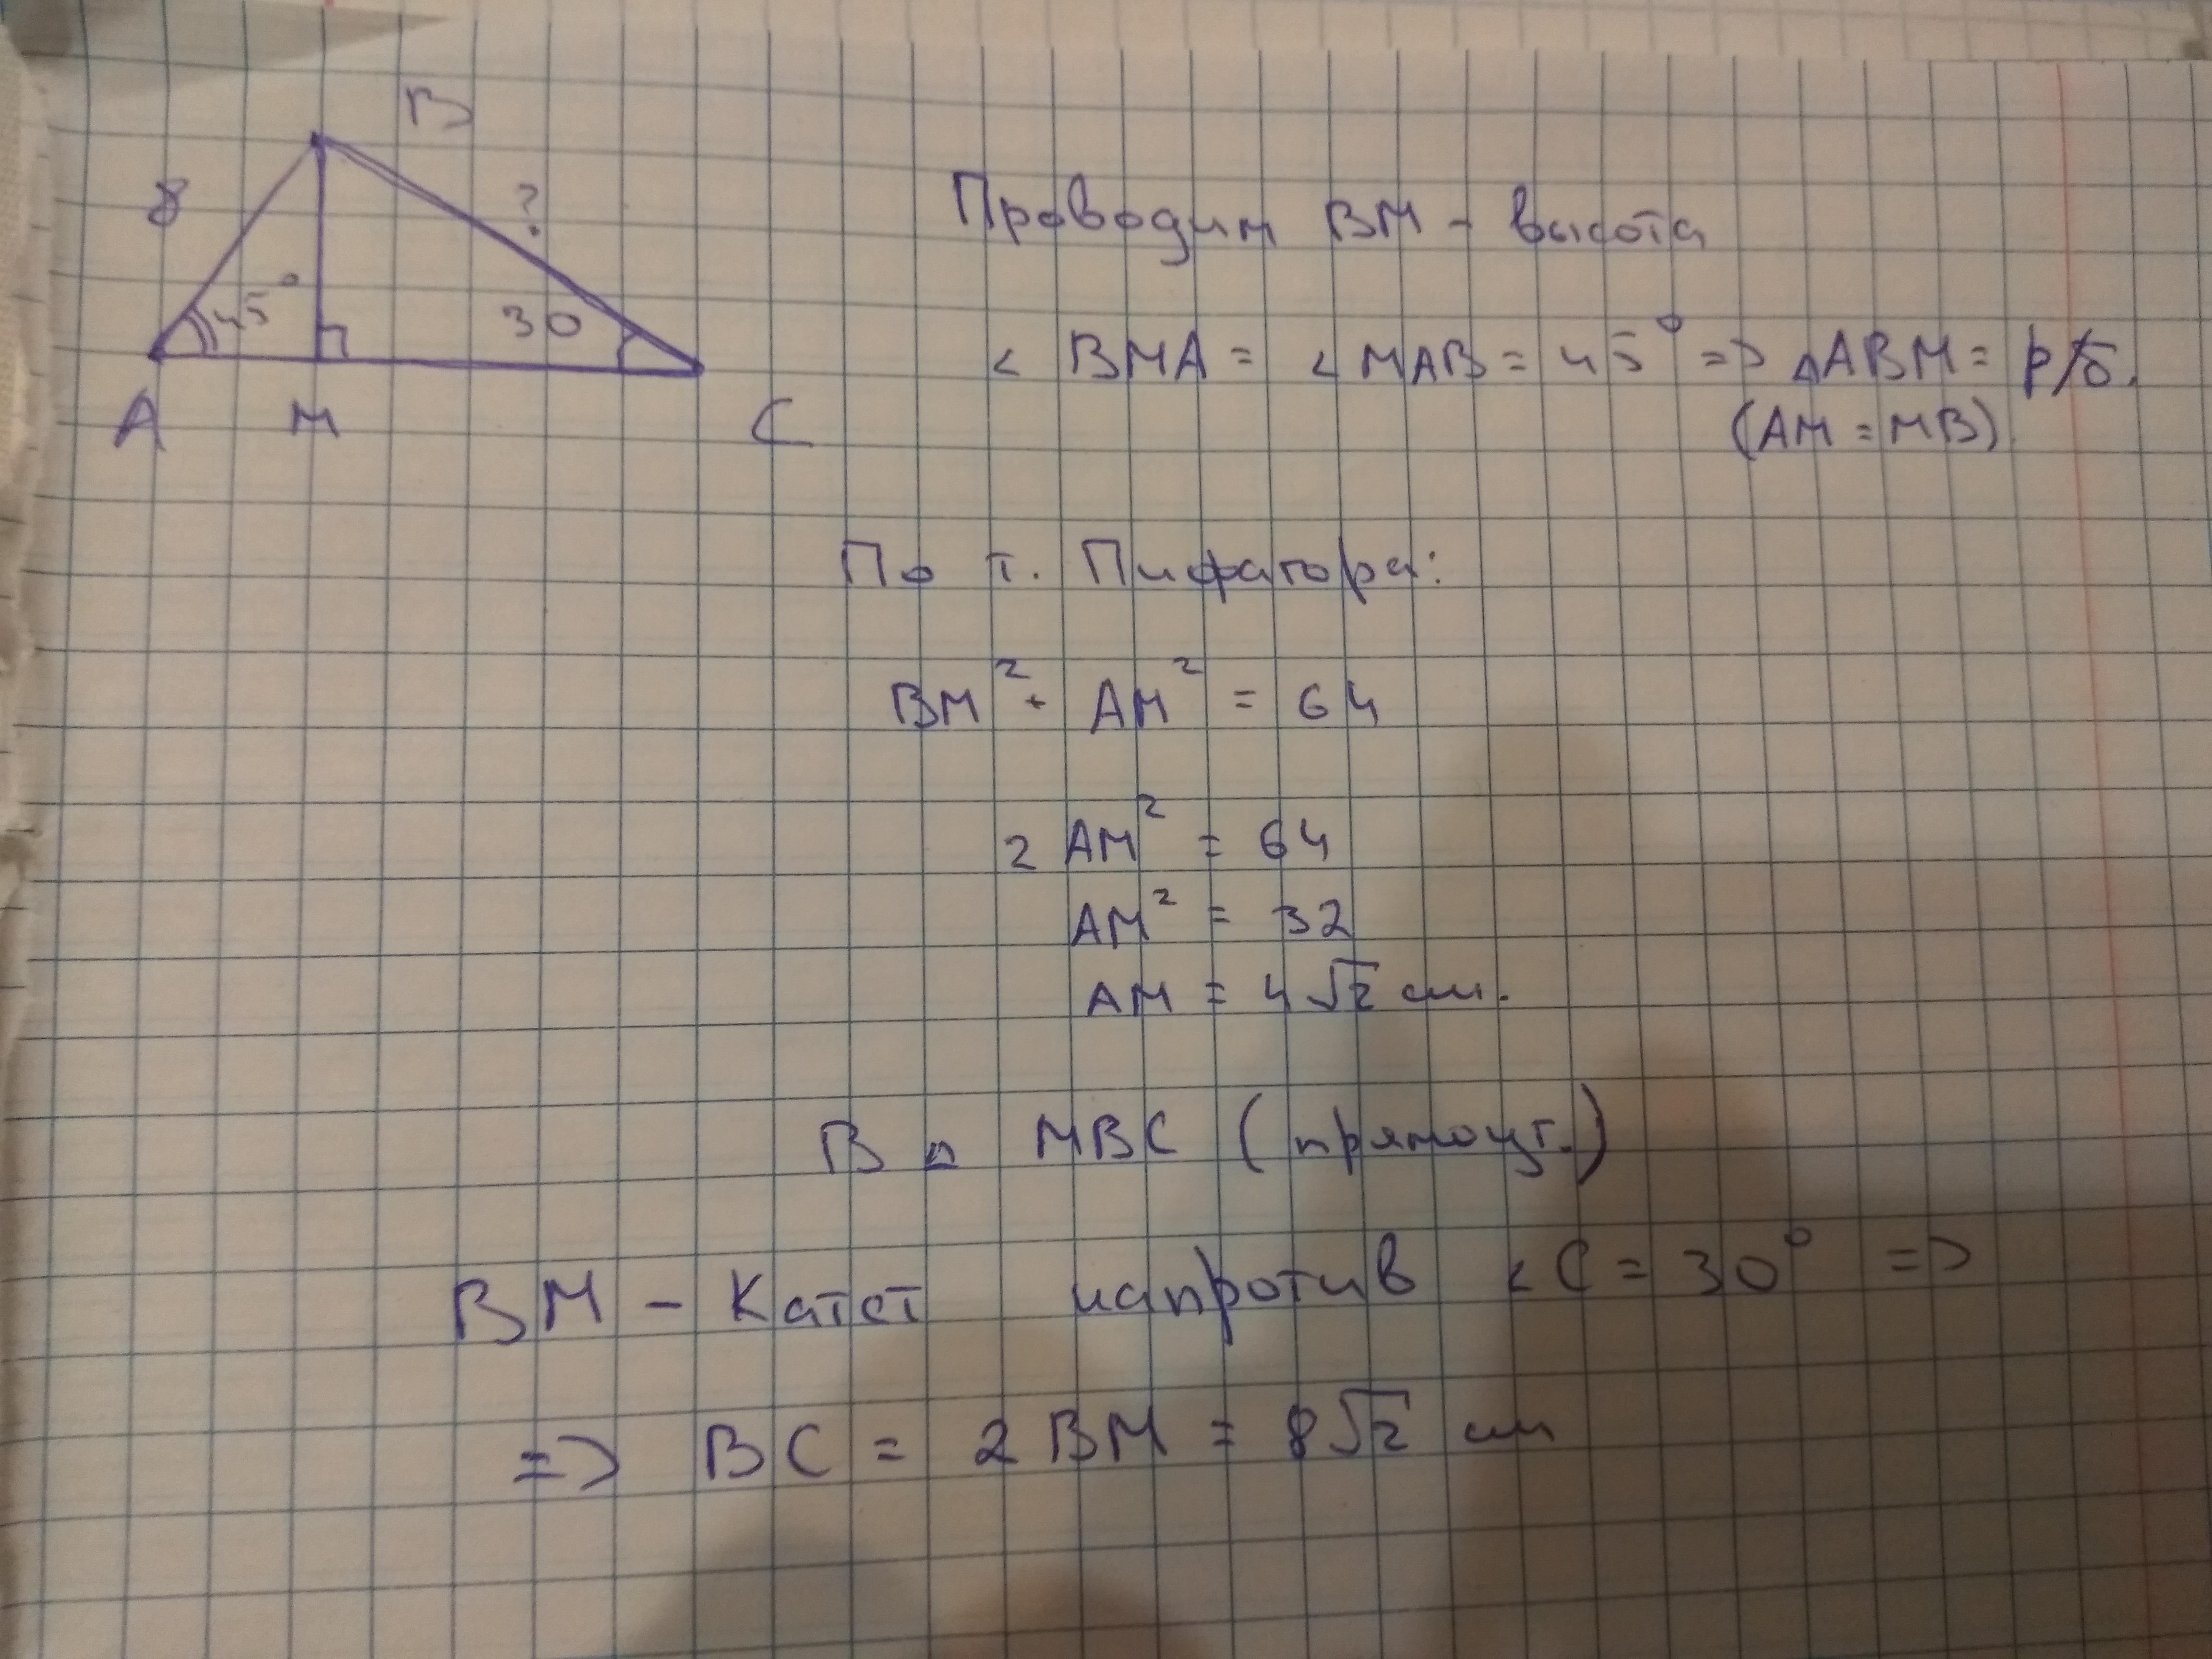 B
8
?
45°
30
A
M
C
Проводим BM - высота
< BMA = < MAB = 45° => △ABM = р/б.
(AM = MB)
По т. Пифагора:
BM² + AM² = 64
2 AM² = 64
AM² = 32
AM = 4√2 см.
В △ MBC (прямоуг.)
BM - Катет напротив <C = 30° =>
=> BC = 2 BM = 8√2 см